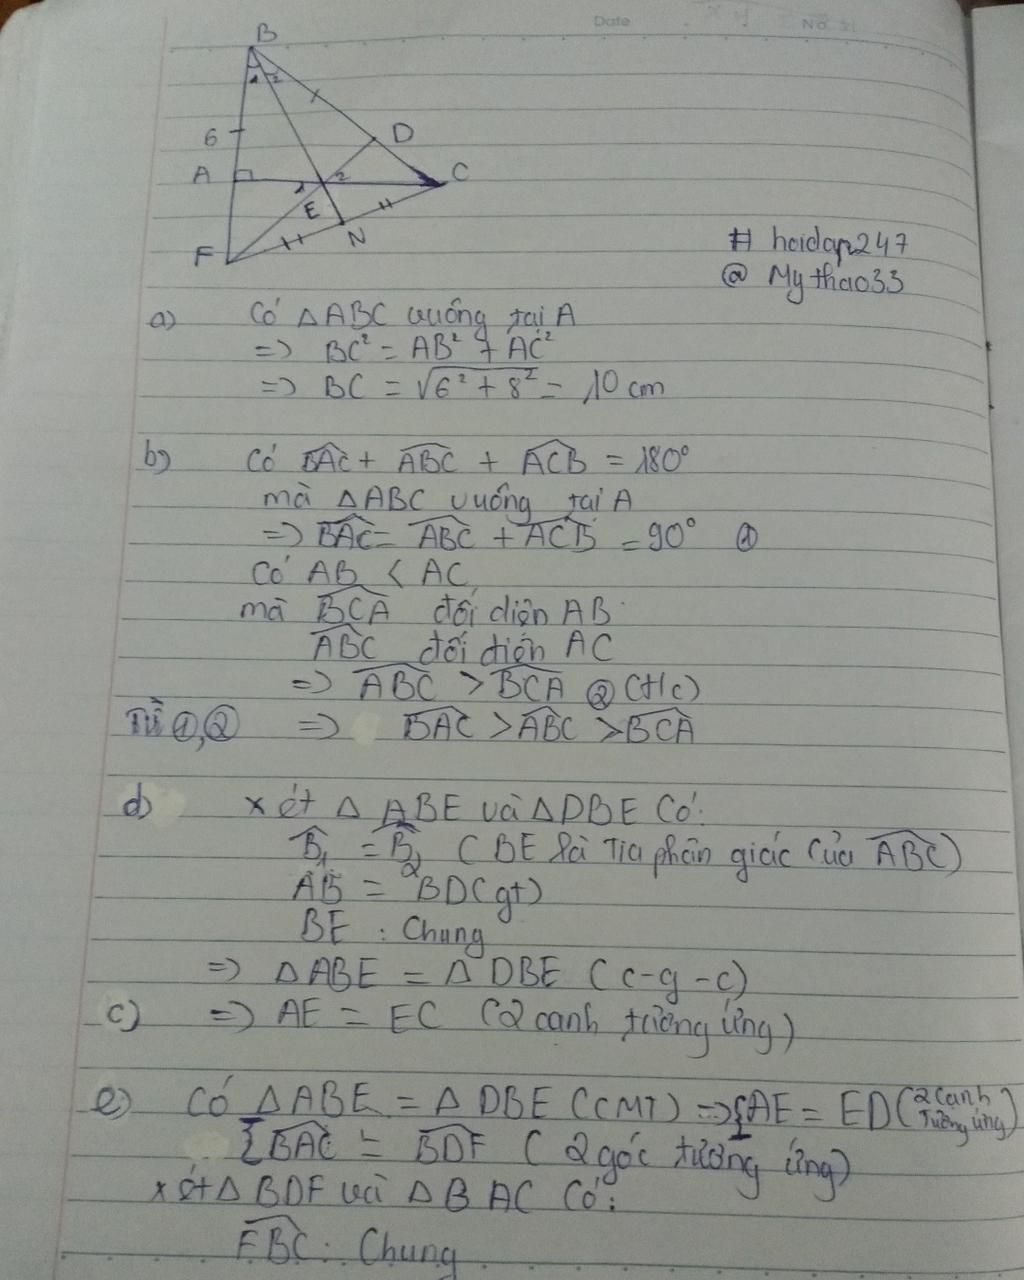 Date
No
B
1 2
6
D
A
C
1
2
E
F
N
# hoidap247
@ Mythao33
a) Có △ABC vuông tại A
=> BC² = AB² + AC²
=> BC = √6² + 8² = 10 cm
b) Có BAC + ABC + ACB = 180°
mà △ABC vuông tại A
=> BAC = ABC + ACB = 90° ①
Có AB < AC
mà BCA đối diện AB
ABC đối diện AC
=> ABC > BCA ② (t/c)
Từ ①,② => BAC > ABC > BCA
d) xét △ ABE và △DBE Có:
B₁ = B₂ ( BE là Tia phân giác của ABC)
AB = BD (gt)
BE : Chung
=> △ABE = △ DBE ( c-g-c)
c) => AE = EC (2 cạnh tương ứng)
e) Có △ABE = △ DBE (CMT) => { AE = ED (2 cạnh tương ứng)
{ BAC = BDF ( 2 góc tương ứng)
xét △ BDF và △ BAC Có:
FBC : Chung